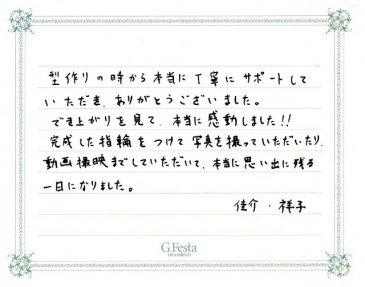 型作りの時から本当に丁寧にサポートして
いただき、ありがとうございました。
でき上がりを見て、本当に感動しました!!
完成した指輪をつけて写真を撮っていただいたり、
動画撮映までしていただいて、本当に思い出に残る
一日になりました。
佳介・祥子
G.Festa
DIAMOND